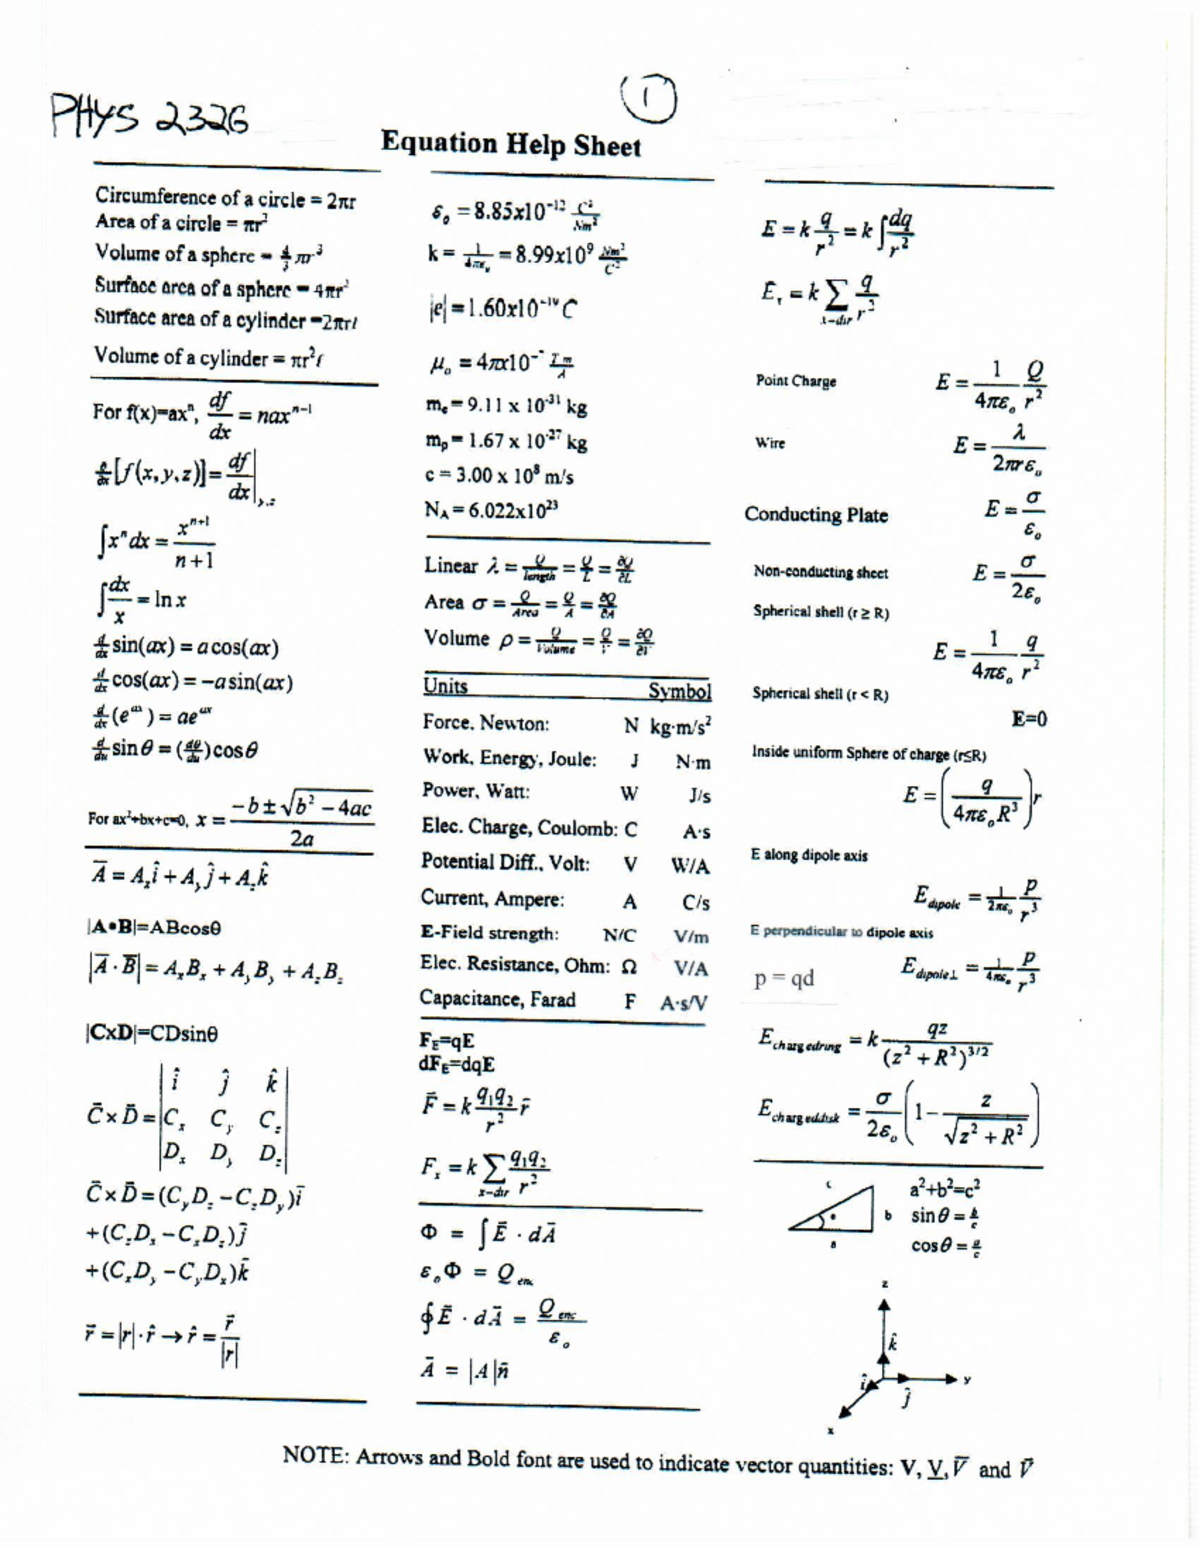 PHYS 2326
1
Equation Help Sheet
Circumference of a circle = 2πr
Area of a circle = πr²
Volume of a sphere = 4/3 πr³
Surface area of a sphere = 4πr²
Surface area of a cylinder = 2πrℓ
Volume of a cylinder = πr²ℓ
For f(x)=axⁿ, df/dx = naxⁿ⁻¹
∂/∂x [f(x,y,z)] = df/dx |y,z
∫xⁿdx = xⁿ⁺¹/(n+1)
∫dx/x = ln x
d/dx sin(ax) = a cos(ax)
d/dx cos(ax) = −a sin(ax)
d/dx (e^ax) = ae^ax
d/du sin θ = (dθ/du) cos θ
For ax²+bx+c=0, x = (−b ± √(b² − 4ac))/2a
A̅ = Aₓî + A_yĵ + A_zk̂
|A•B|=ABcosθ
|A̅ · B̅| = AₓBₓ + A_yB_y + A_zB_z
|CxD|=CDsinθ
C̅ × D̅ = | î ĵ k̂ |
| Cₓ C_y C_z |
| Dₓ D_y D_z |
C̅ × D̅ = (C_yD_z − C_zD_y)i̅
+(C_zDₓ − CₓD_z)j̅
+(CₓD_y − C_yDₓ)k̅
r⃗ = |r|·r̂ → r̂ = r⃗/|r|
ε₀ = 8.85x10⁻¹² C²/Nm²
k = 1/4πε₀ = 8.99x10⁹ Nm²/C²
|e| = 1.60x10⁻¹⁹ C
μ₀ = 4πx10⁻⁷ T m/A
mₑ = 9.11 x 10⁻³¹ kg
mₚ = 1.67 x 10⁻²⁷ kg
c = 3.00 x 10⁸ m/s
N_A = 6.022x10²³
Linear λ = Q/length = Q/L = ∂Q/∂L
Area σ = Q/Area = Q/A = ∂Q/∂A
Volume ρ = Q/Volume = Q/V = ∂Q/∂V
Units Symbol
Force, Newton: N kg·m/s²
Work, Energy, Joule: J N·m
Power, Watt: W J/s
Elec. Charge, Coulomb: C A·s
Potential Diff., Volt: V W/A
Current, Ampere: A C/s
E-Field strength: N/C V/m
Elec. Resistance, Ohm: Ω V/A
Capacitance, Farad F A·s/V
F_E=qE
dF_E=dqE
F⃗ = k q₁q₂/r² r̂
Fₓ = k Σ x-dir q₁q₂/r²
Φ = ∫E̅ · dA̅
ε₀Φ = Q enc
∮E̅ · dA̅ = Q enc/ε₀
A̅ = |A|n̂
E = k q/r² = k ∫dq/r²
Eₓ = k Σ x-dir q/r²
Point Charge E = 1/4πε₀ Q/r²
Wire E = λ/2πrε₀
Conducting Plate E = σ/ε₀
Non-conducting sheet E = σ/2ε₀
Spherical shell (r ≥ R)
E = 1/4πε₀ q/r²
Spherical shell (r < R)
E=0
Inside uniform Sphere of charge (r≤R)
E = (q/4πε₀R³)r
E along dipole axis
E dipole = 1/2πε₀ p/r³
E perpendicular to dipole axis
E dipole⊥ = 1/4πε₀ p/r³
p = qd
E chargedring = k qz/(z² + R²)^3/2
E chargeddisk = σ/2ε₀ (1 − z/√(z² + R²))
c
b
a
a²+b²=c²
sin θ = b/c
cos θ = a/c
z
k̂
î
ĵ
y
x
NOTE: Arrows and Bold font are used to indicate vector quantities: V, V, V̅ and V⃗